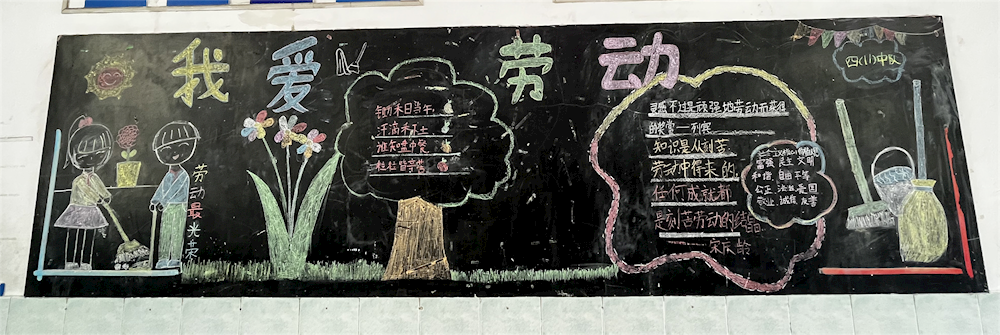 我爱劳动
四(1)中队
劳动最光荣
锄禾日当午
汗滴禾下土
谁知盘中餐
粒粒皆辛苦
灵感不过是顽强地劳动而获得
的奖赏——列宾
知识是从刻苦
劳动中得来的,
任何成就都
是刻苦劳动的结晶
——宋庆龄
富强 民主 文明
和谐 自由 平等
公正 法治 爱国
敬业 诚信 友善